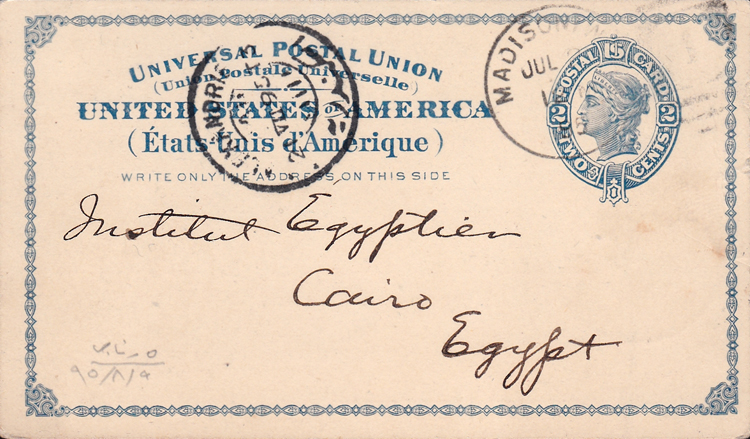 UNIVERSAL POSTAL UNION
(Union Postale Universelle)
UNITED STATES OF AMERICA
(États-Unis d'Amérique)
WRITE ONLY THE ADDRESS ON THIS SIDE
U.S. POSTAL CARD
2 2
TWO CENTS
MADISON
JUL
Institut Egyptien
Cairo
Egypt